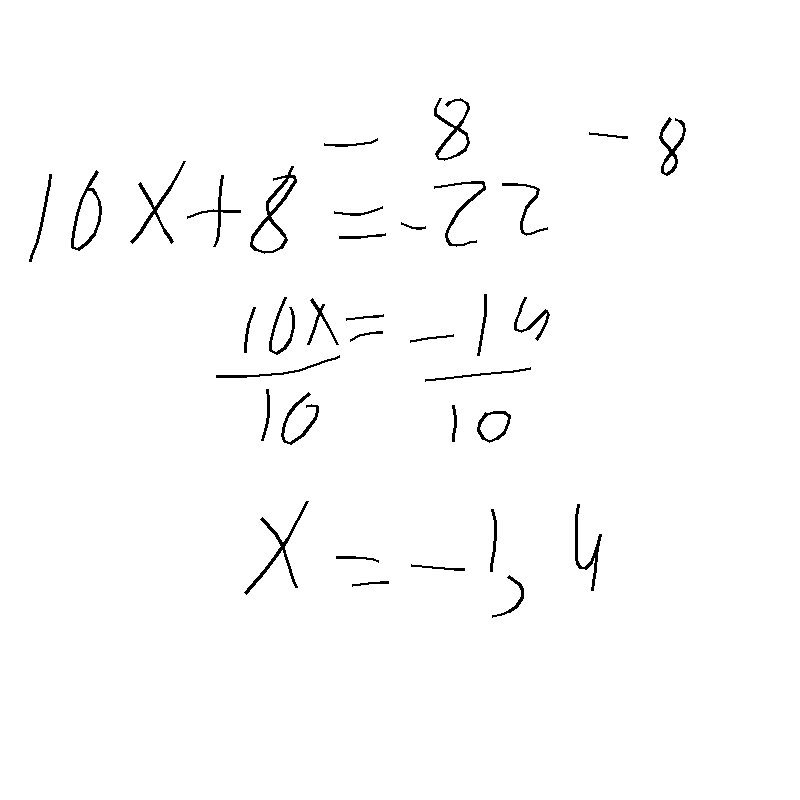 - 8 - 8
10x+8=-22
10x=-14
10 10
x=-1,4